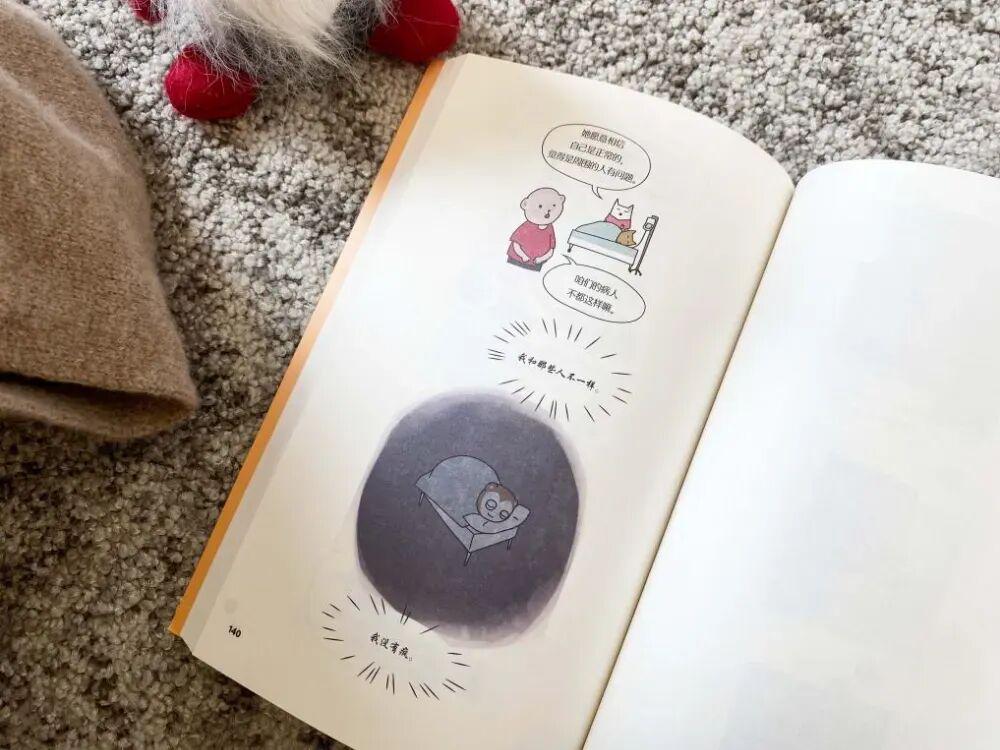 她愿意相信
自己是正常的,
觉得是周围的人有问题。
咱们的病人
不都这样嘛。
我和那些人不一样。
我没有疯。
140